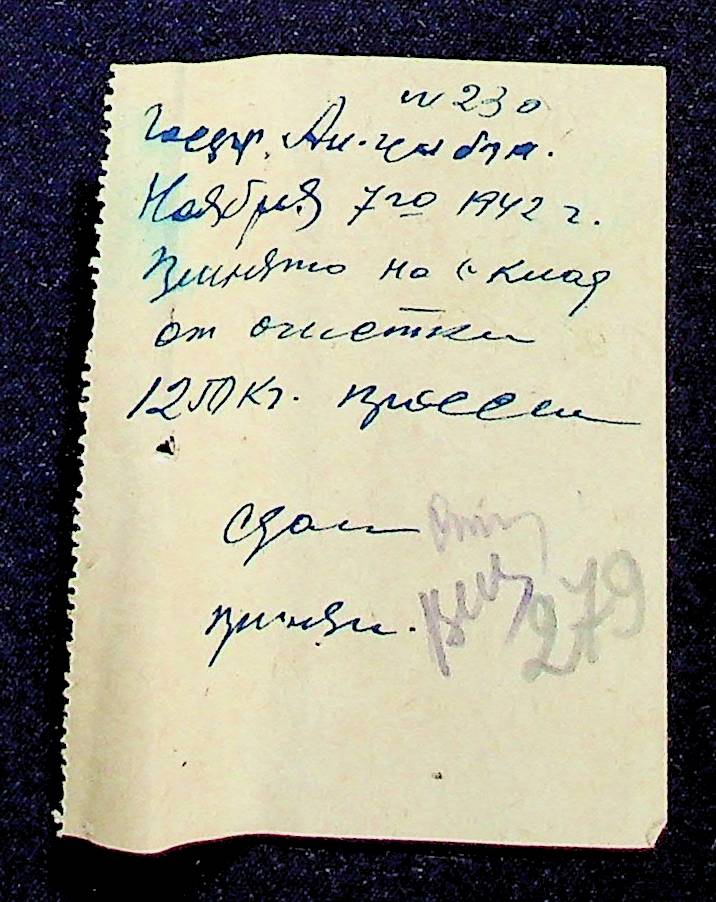 № 230
Ноября 7го 1942 г.
Принято на склад
от очистки
1250 кг. просса
Сдал
Принял.
279